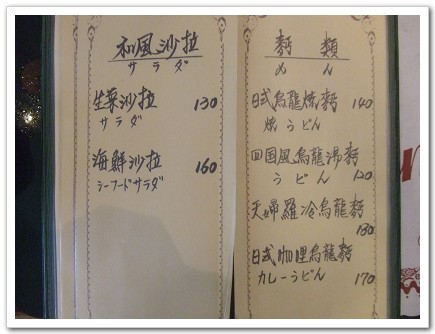 和風沙拉
サラダ
生菜沙拉 130
サラダ
海鮮沙拉 160
シーフードサラダ
麵類
めん
日式烏龍燒麵 140
焼うどん
四国風烏龍湯麵
うどん 120
天婦羅冷烏龍麵
130
日式咖哩烏龍麵
カレーうどん 170